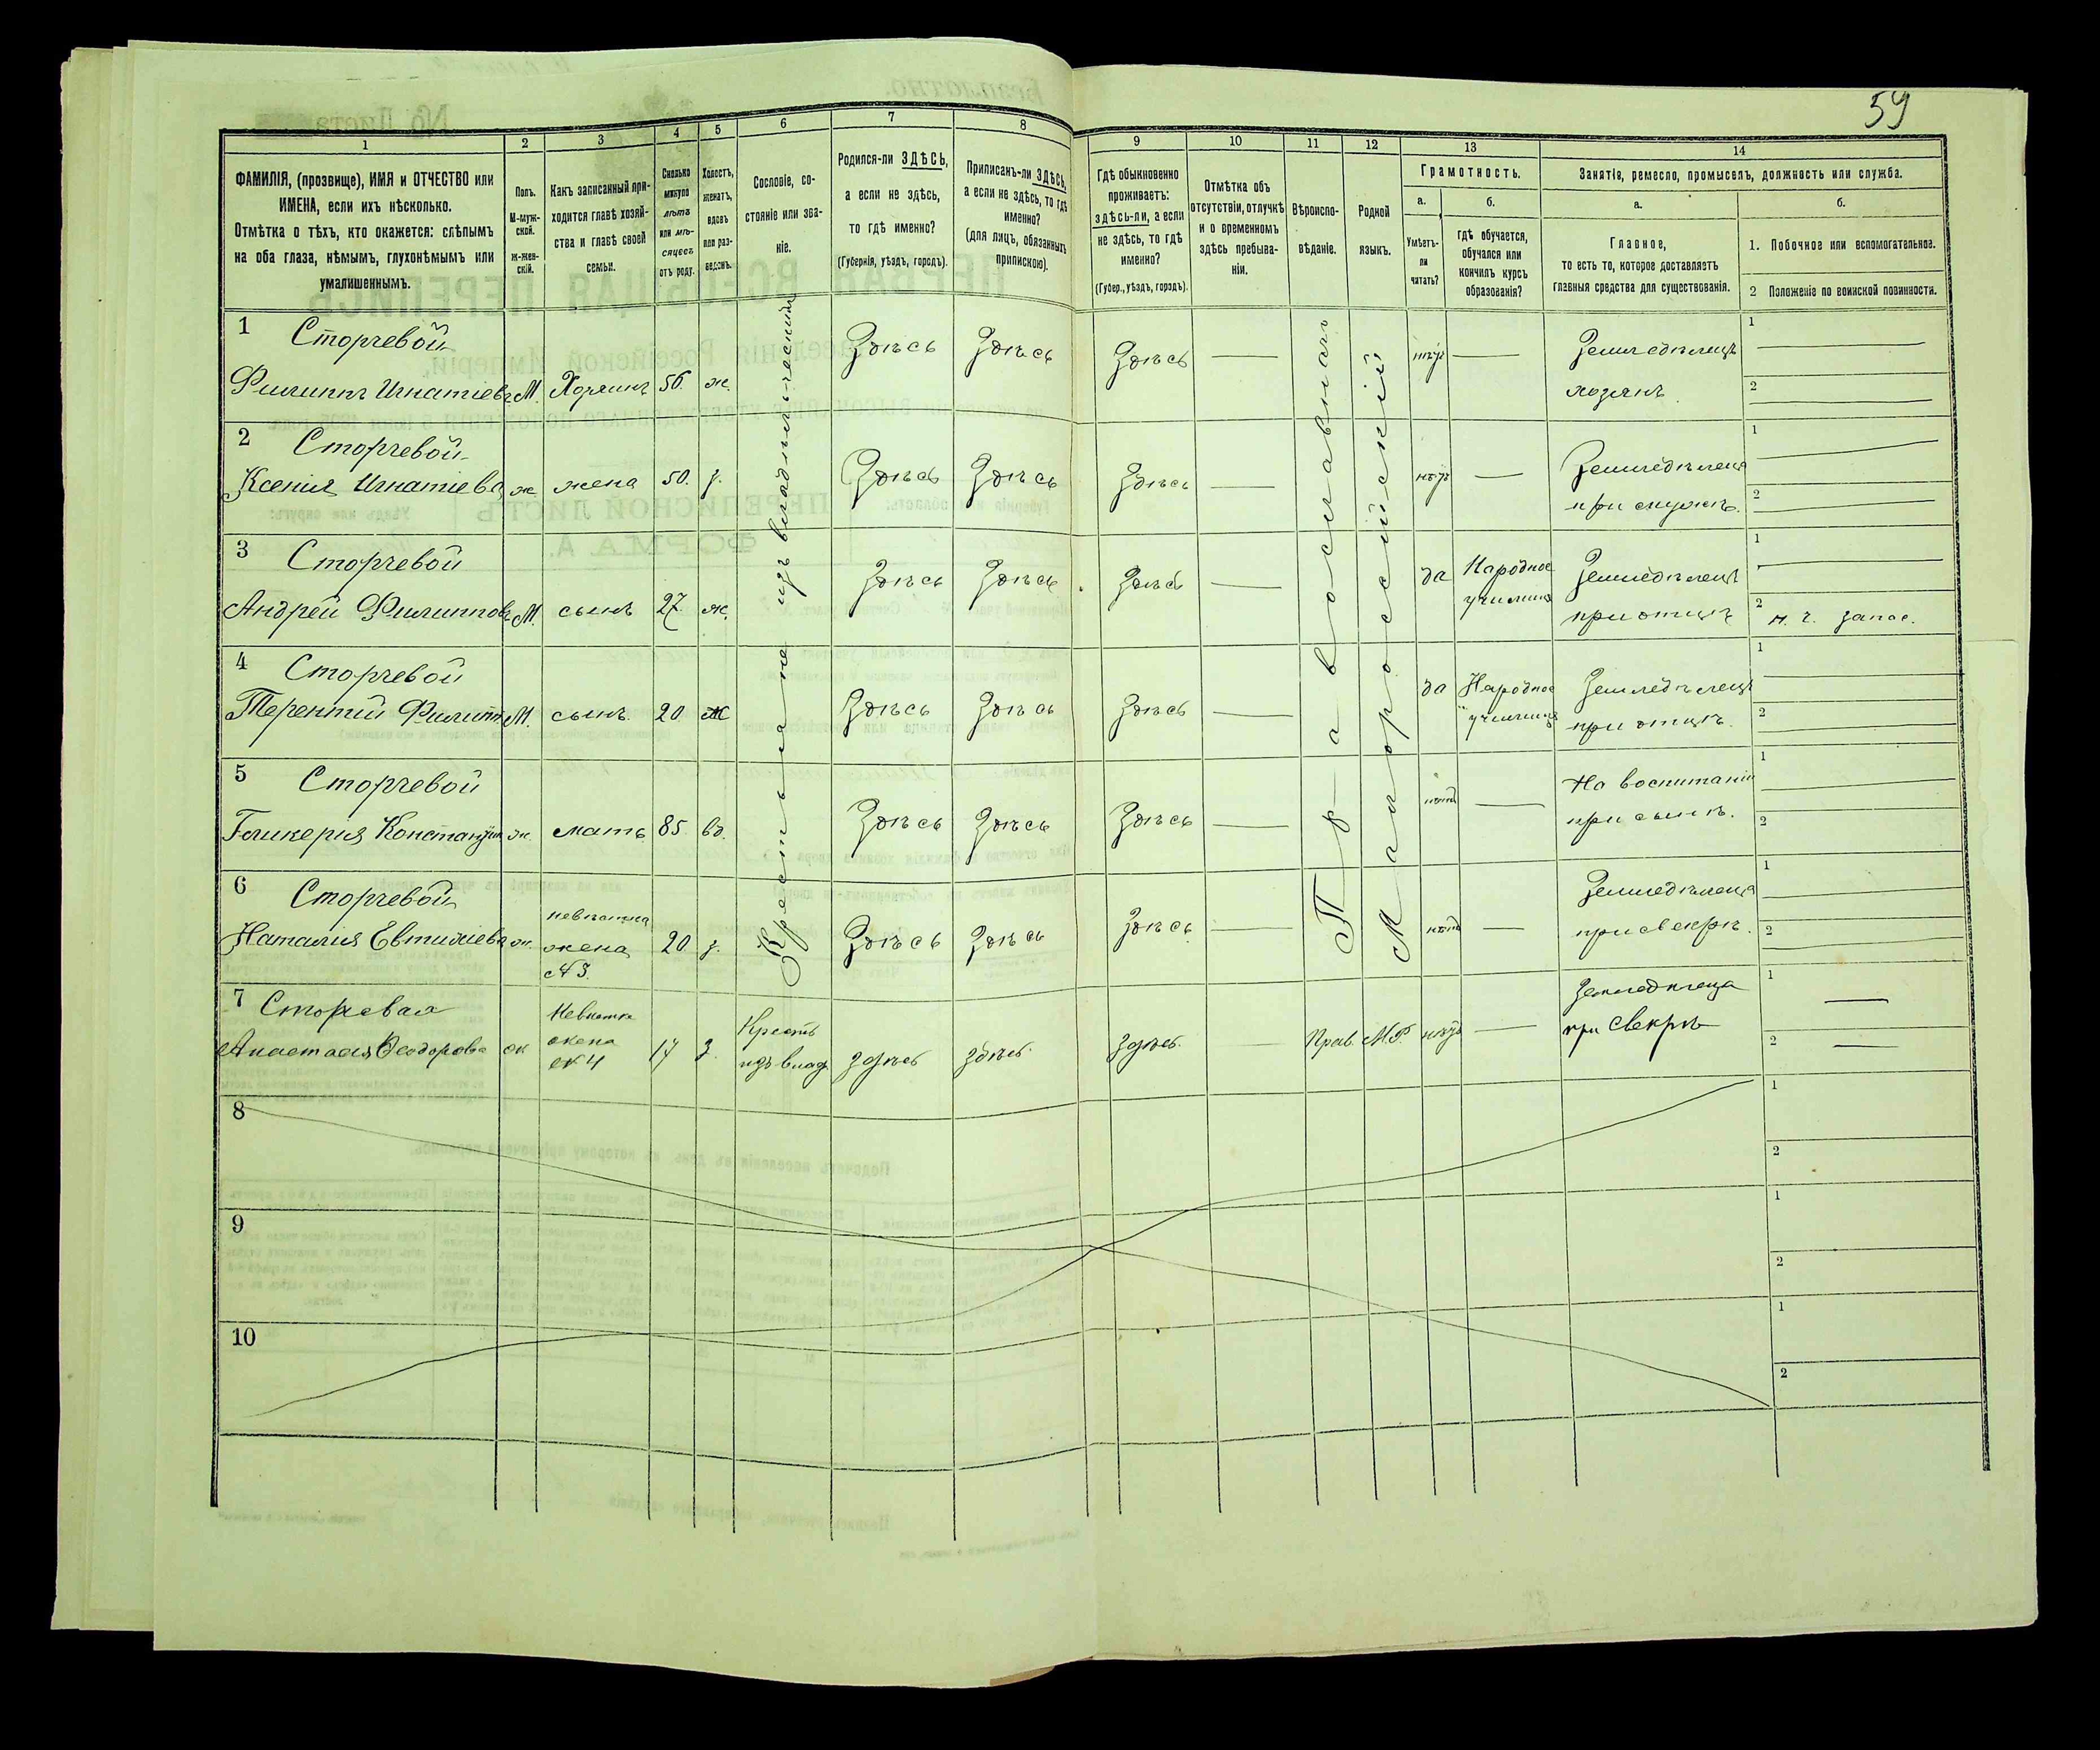 59
1
2
3
4
5
6
7
8
9
10
11
12
13
14
ФАМИЛІЯ, (прозвище), ИМЯ и ОТЧЕСТВО или
ИМЕНА, если ихъ нѣсколько.
Отмѣтка о тѣхъ, кто окажется: слѣпымъ
на оба глаза, нѣмымъ, глухонѣмымъ или
умалишеннымъ.
Полъ.
М-муж-
ской.
ж-жен-
скій.
Какъ записанный при-
ходится главѣ хозяй-
ства и главѣ своей
семьи.
Сколько
минуло
лѣтъ
или мѣ-
сяцевъ
отъ роду.
Холостъ,
женатъ,
вдовъ
или раз-
веденъ.
Сословіе, со-
стояніе или зва-
ніе.
Родился-ли ЗДѢСЬ,
а если не здѣсь,
то гдѣ именно?
(Губернія, уѣздъ, городъ).
Приписанъ-ли ЗДѢСЬ,
а если не здѣсь, то гдѣ
именно?
(для лицъ, обязанныхъ
припискою).
Гдѣ обыкновенно
проживаетъ:
здѣсь-ли, а если
не здѣсь, то гдѣ
именно?
(Губер., уѣздъ, городъ).
Отмѣтка объ
отсутствіи, отлучкѣ
и о временномъ
здѣсь пребыва-
ніи.
Вѣроиспо-
вѣданіе.
Родной
языкъ.
Грамотность.
а.
Умѣетъ-
ли
читать?
б.
гдѣ обучается,
обучался или
кончилъ курсъ
образованія?
Занятія, ремесло, промыселъ, должность или служба.
а.
Главное,
то есть то, которое доставляетъ
главныя средства для существованія.
б.
1. Побочное или вспомогательное.
2 Положеніе по воинской повинности.
Крестьяне изъ владѣльческихъ
Православная
Малороссійскій
1 Сторчевой
Филиппъ Игнатіевъ М. Хозяинъ 56. ж. Здѣсь Здѣсь Здѣсь — нѣтъ — Земледѣлецъ
хозяинъ.
1
2
2 Сторчевой
Ксенія Игнатіева ж. жена 50. з. Здѣсь Здѣсь Здѣсь — нѣтъ — Земледѣлец
при мужѣ.
1
2
3 Сторчевой
Андрей Филипповъ М. сынъ 27. ж. Здѣсь Здѣсь Здѣсь — да Народное
училище Земледѣлецъ
при отцѣ
1
2 н. ч. запас.
4 Сторчевой
Терентій Филипп М. сынъ. 20. ж Здѣсь Здѣсь Здѣсь — да Народное
училище Земледѣлецъ
при отцѣ.
1
2
5 Сторчевой
Гликерия Константин ж. мать 85. вд. Здѣсь Здѣсь Здѣсь — нѣтъ — На воспитаніи
при сынѣ.
1
2
6 Сторчевой
Наталия Евтихіева ж. невѣстка
жена
№ 3. 20. з. Здѣсь Здѣсь Здѣсь — нѣтъ — Земледѣлеца
при свекрѣ.
1
2
7 Сторчевая
Анастасія Ѳеодорова ж Невѣстка
жена
№ 4 17 з. Крестъ
изъ влад. здѣсь здѣсь здѣсь — Прав. М.Р. нѣтъ — Земледѣлеца
при свекрѣ
1
2
8
1
2
9
1
2
10
1
2